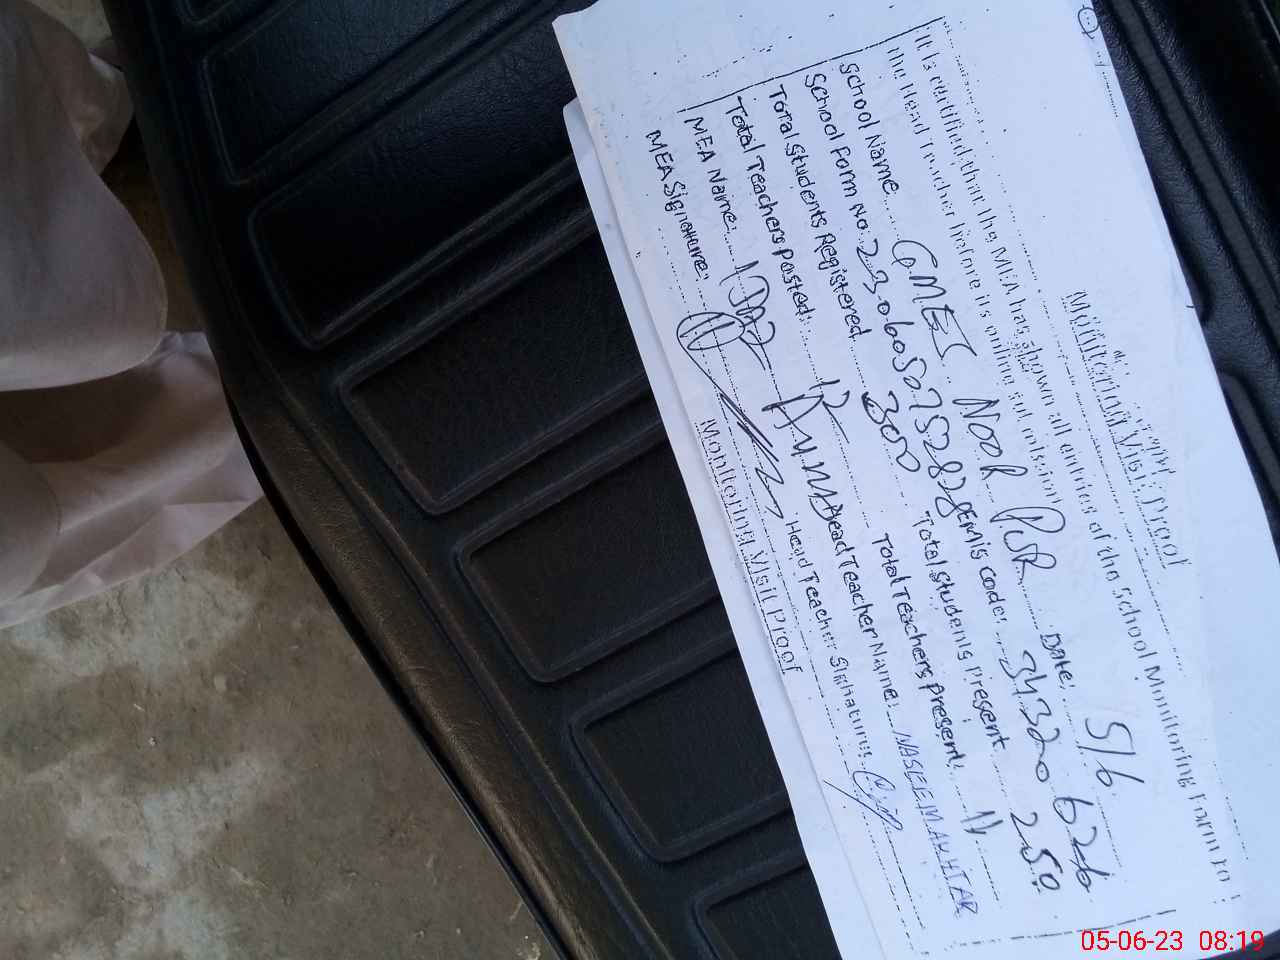 Monitoring Visit Proof
It is certified that the MEA has shown all entries of the School Monitoring Form to
the Head Teacher before its online submission.
School Name GMES NOOR PUR Date: 5/6
School Form No. EMIS Code: 34320626
Total Students Registered 300 Total Students Present 250
Total Teachers Posted: 12 Total Teachers Present: 11
MEA Name: Head Teacher Name: NASEEM AKHTAR
MEA Signature: Head Teacher Signature:
Monitoring Visit Proof
05-06-23 08:19